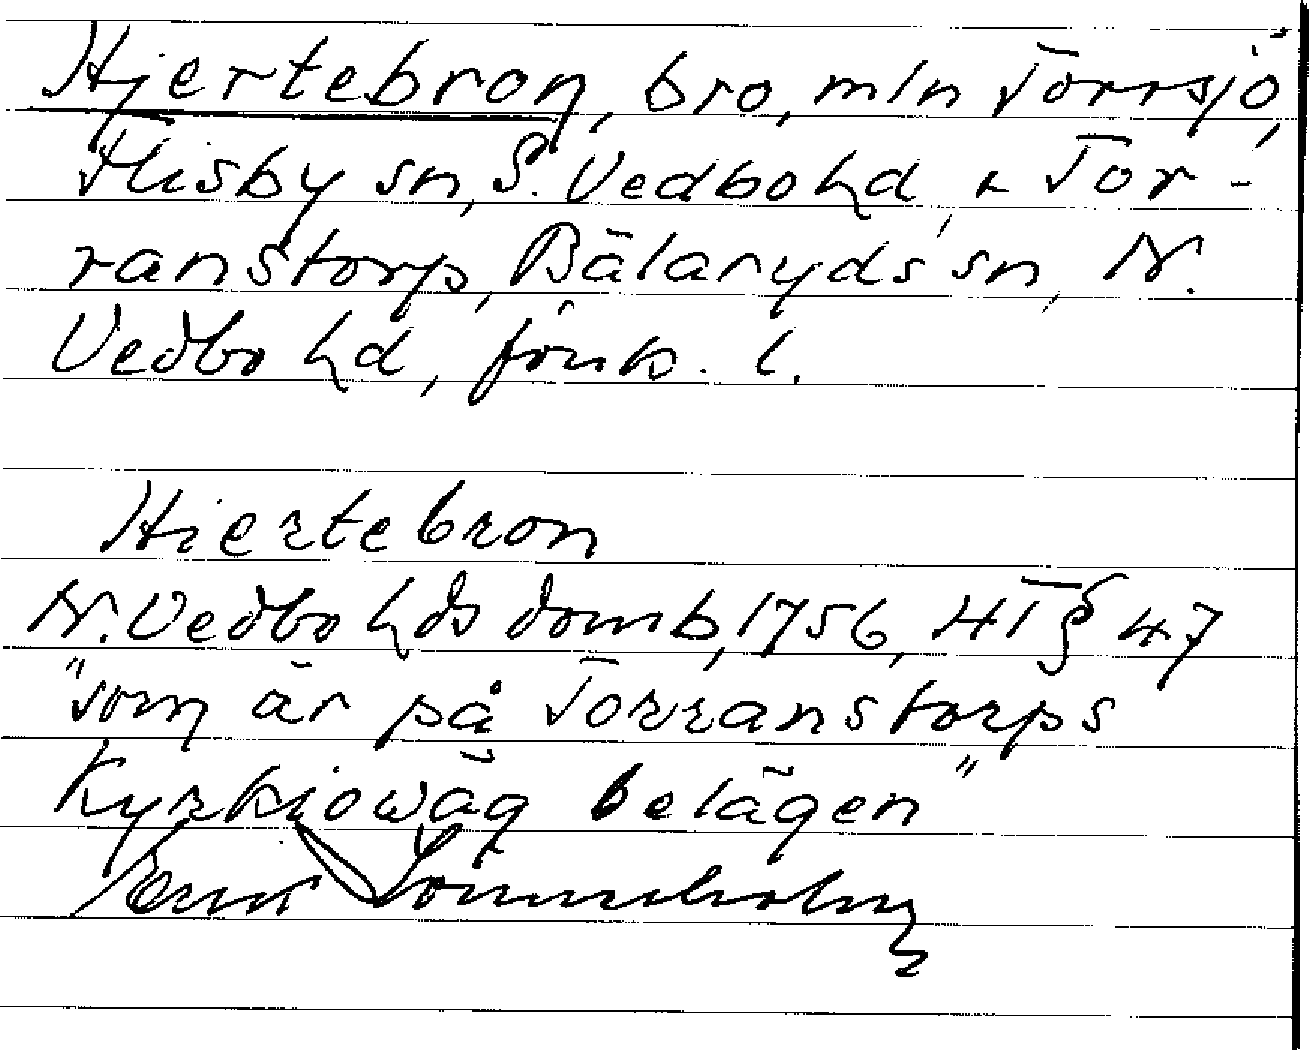 Hjertebron, bro, mln Torrsjö,
Flisby sn, S. Vedbo hd, & Tor-
ranstorp, Bälaryds sn, N.
Vedbo hd, Jönk. l.
Hiertebron
N. Vedbo hds domb, 1756, HT § 47
"som är på Torranstorps
Kyrkiowäg belägen"